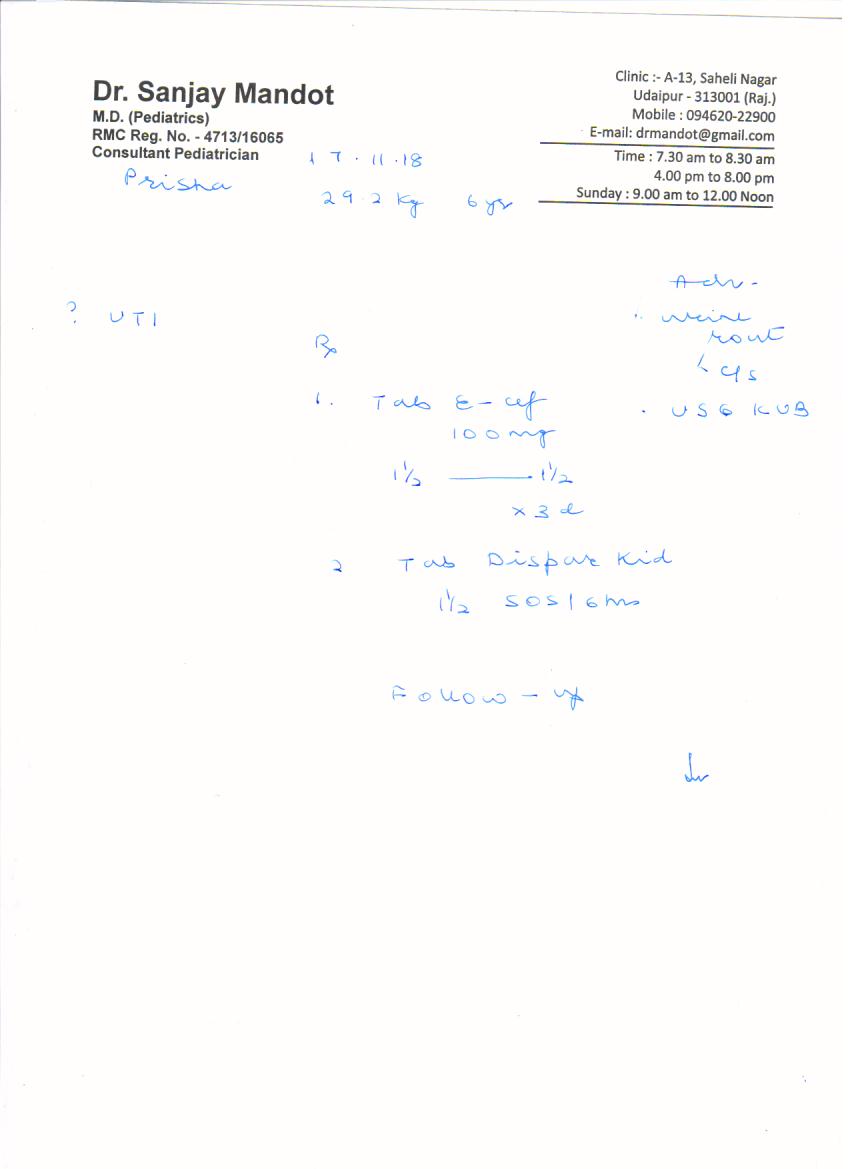 Dr. Sanjay Mandot
M.D. (Pediatrics)
RMC Reg. No. - 4713/16065
Consultant Pediatrician
Clinic :- A-13, Saheli Nagar
Udaipur - 313001 (Raj.)
Mobile : 094620-22900
E-mail: drmandot@gmail.com
Time : 7.30 am to 8.30 am
4.00 pm to 8.00 pm
Sunday : 9.00 am to 12.00 Noon
17.11.18
Prisha
29.2 kg 6 yr
? UTI
Adv -
urine
rout
c/s
USG KUB
Rx
1. Tab E-cef
100 mg
1 1/2 —— 1 1/2
x 3 d
2 Tab Dispar Kid
1 1/2 SOS | 6 hrs
Follow - up